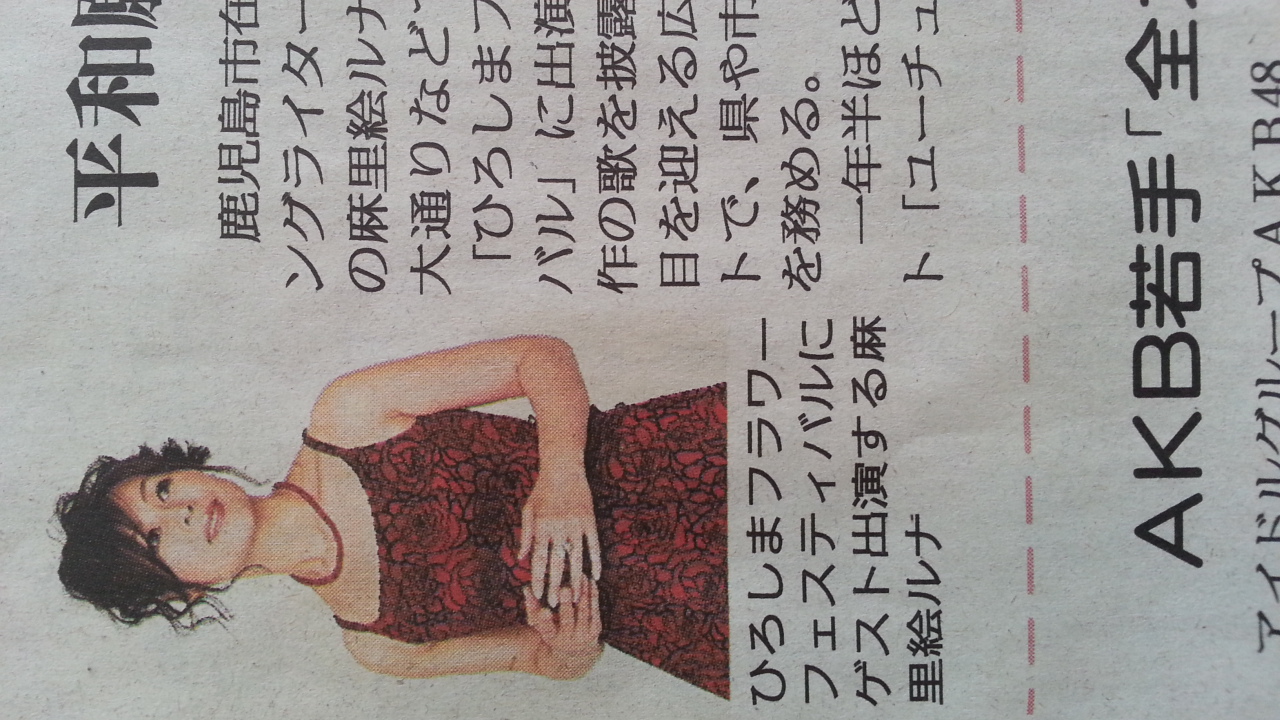 平和
鹿児島市在
ングライター
の麻里絵ルナ
大通りなど
「ひろしまフ
バル」に出演
作の歌を披露
目を迎える広
トで、県や市
を務める。
一年半ほど
ト「ユーチュ
ひろしまフラワー
フェスティバルに
ゲスト出演する麻
里絵ルナ
AKB若手「全
アイドルグループAKB48